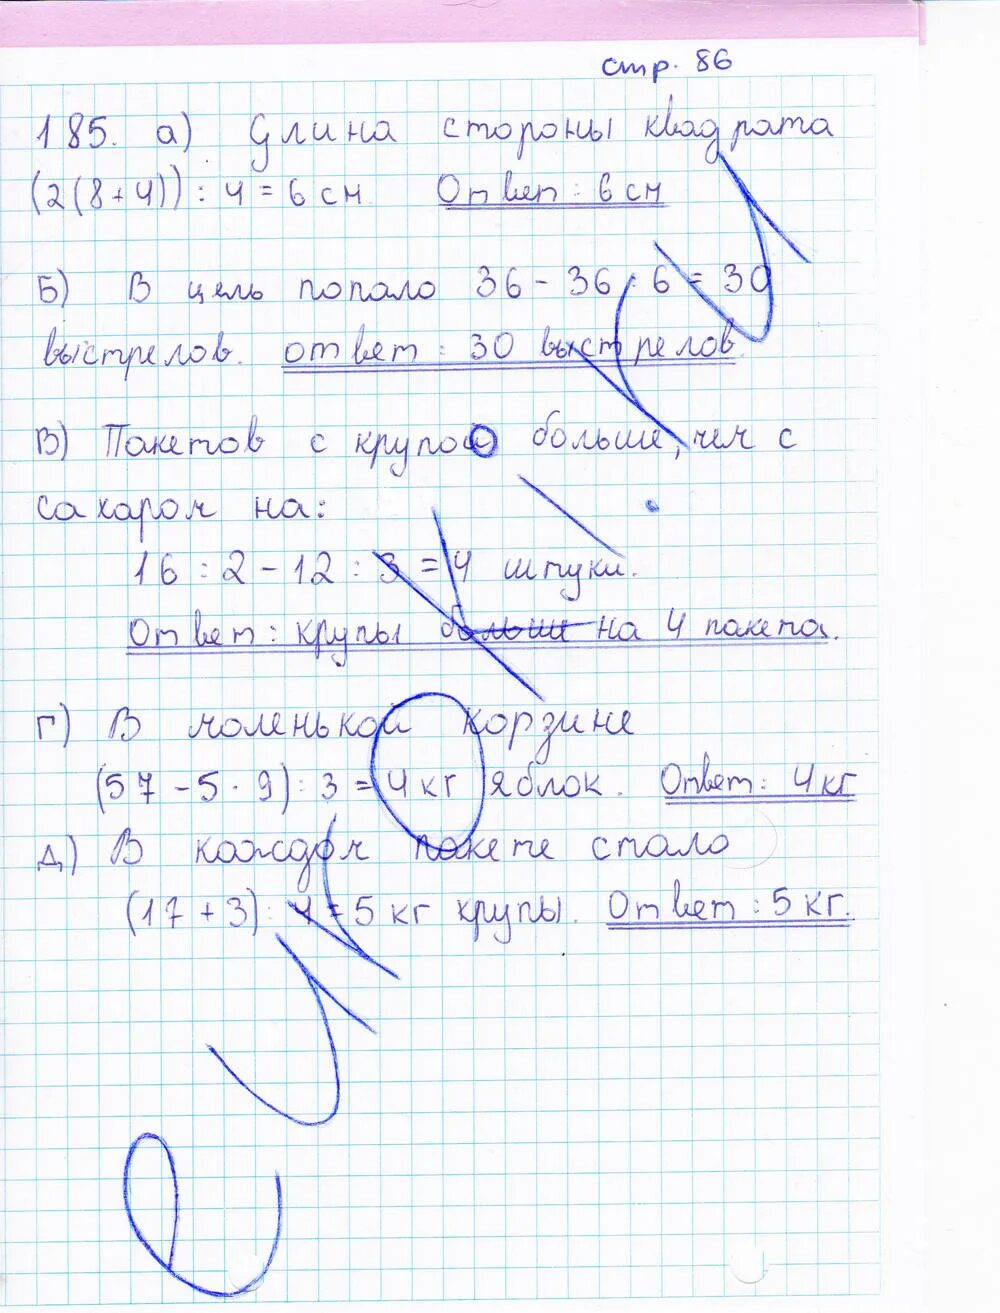 стр. 86
185. а) Длина стороны квадрата
(2(8+4)) : 4 = 6 см. Ответ: 6 см
Б) В цель попало 36 - 36 : 6 = 30
выстрелов. ответ: 30 выстрелов.
В) Пакетов с крупой больше, чем с
сахаром на:
16 : 2 - 12 : 3 = 4 штуки.
Ответ: крупы больше на 4 пакета.
Г) В моленькой корзине
(57 - 5 · 9) : 3 = 4 кг яблок. Ответ: 4 кг
д) В каждом пакете стало
(17 + 3) : 4 = 5 кг крупы. Ответ: 5 кг.